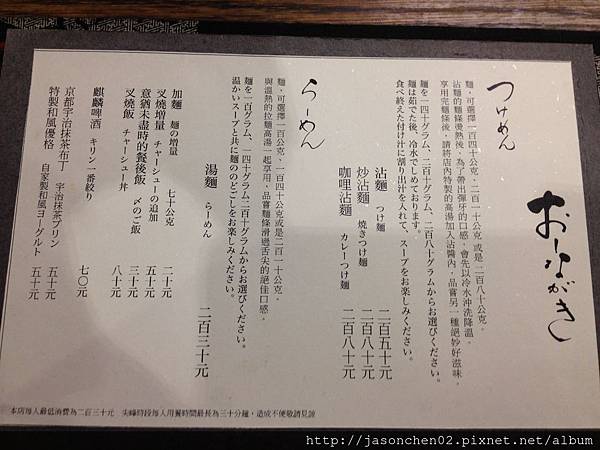 おしながき
つけめん
麵，可選擇一百四十公克，二百一十公克，或是二百八十公克。
沾麵的麵條燙熟後，為了帶出彈牙的口感，會先以冷水沖洗降溫。
享用完麵條後，請將店內特製的高湯加入沾醬內，品嘗另一種絕妙好滋味。
麵を一四十グラム、二百十グラム、二百八十グラムからお選びください。
麵は茹でた後、冷水でしめております。
食べ終えた付け汁に割り出汁を入れて、スープをお楽しみください。
沾麵 つけ麵 二百五十元
炒沾麵 焼きつけ麵 二百八十元
咖哩沾麵 カレーつけ麵 二百八十元
らーめん
麵，可選擇一百公克、一百四十公克或是二百一十公克。
與溫熱的拉麵高湯一起享用，品嘗麵條滑過舌尖的絕佳口感。
麵を一百グラム、一四十グラム二百十グラムからお選びください。
温かいスープと共に麵ののどごしをお楽しみください。
湯麵 らーめん 二百三十元
加麵 麵の増量 七十公克 二十元
叉燒增量 チャーシューの追加 五十元
意猶未盡時的餐後飯 〆のご飯 三十元
叉燒飯 チャーシュー丼 八十元
麒麟啤酒 キリン一番絞り 七〇元
京都宇治抹茶布丁 宇治抹茶プリン 五十元
特製和風優格 自家製和風ヨーグルト 五十元
本店每人最低消費為二百三十元 尖峰時段每人用餐時間最長為三十分鐘，造成不便敬請見諒
http://jasonchen02.pixnet.net/album